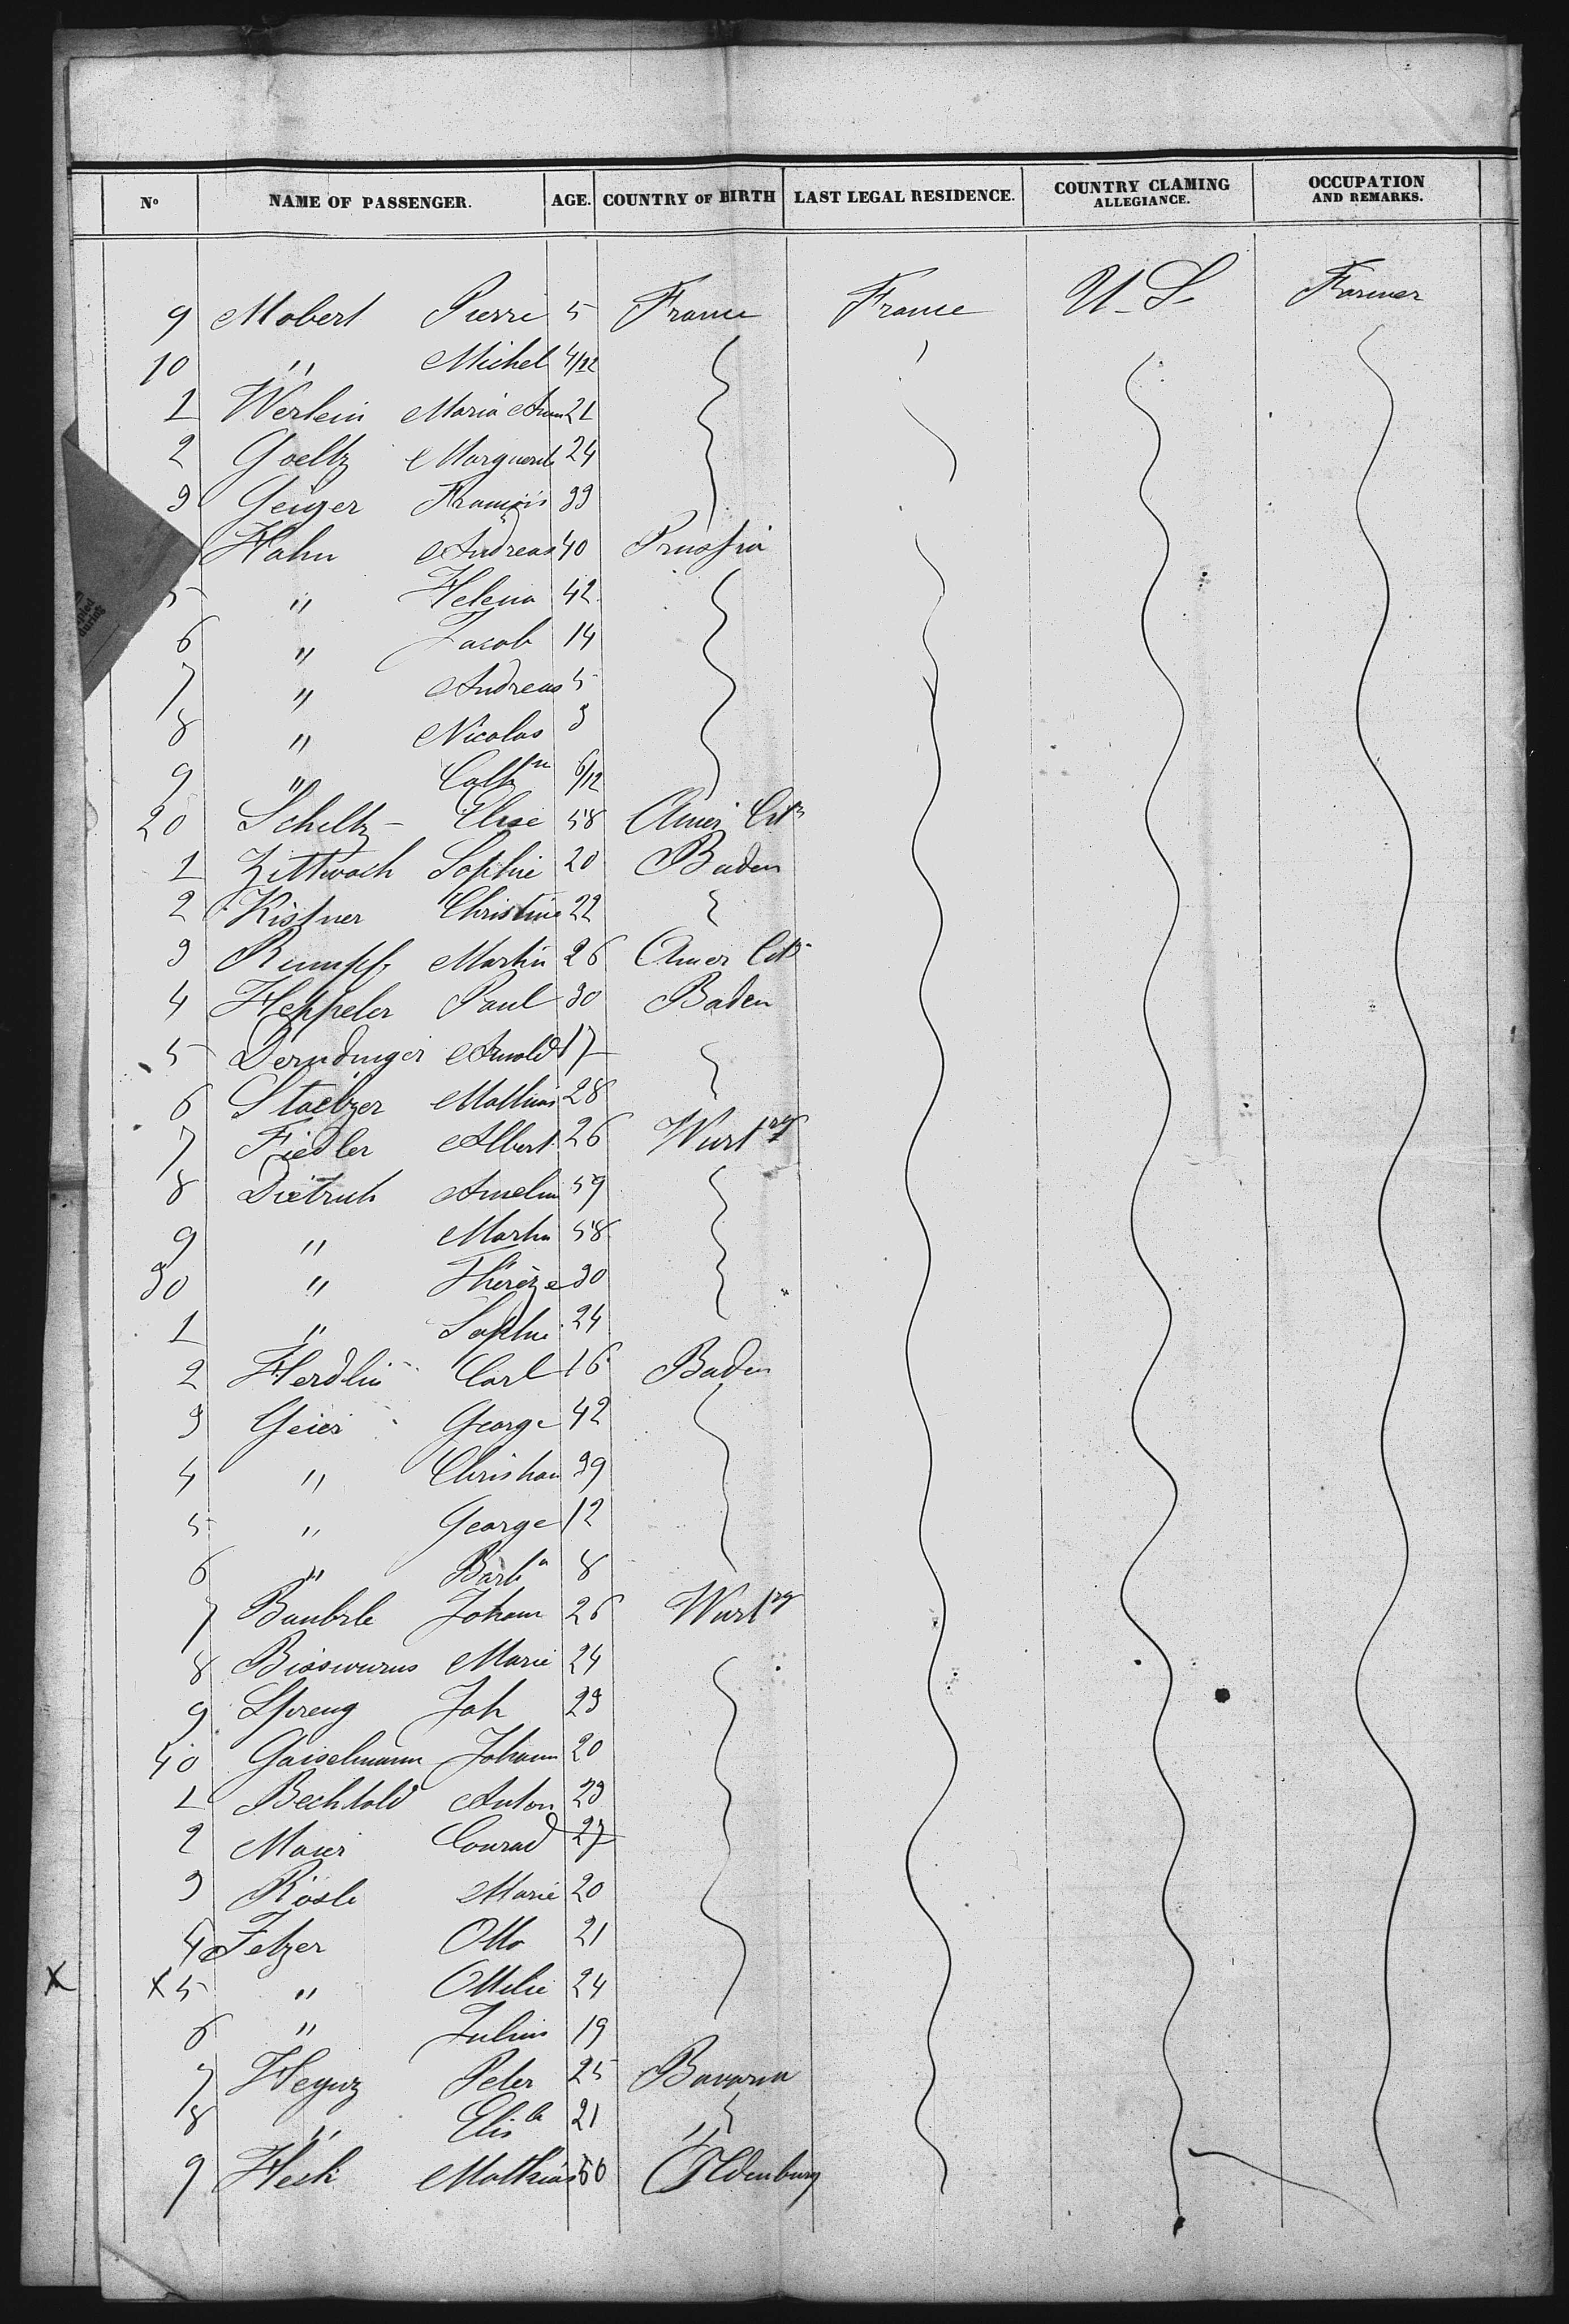 No NAME OF PASSENGER. AGE. COUNTRY OF BIRTH LAST LEGAL RESIDENCE. COUNTRY CLAMING ALLEGIANCE. OCCUPATION AND REMARKS.
9 Mobert Pierre 5 France France U.S. Farmer
10 " Michel 4/12
1 Werlein Maria Ann 21
2 Goeltz Marguerite 24
3 Geiger François 33
Hahn Andreas 40 Prussia
5 " Helena 42
6 " Jacob 14
7 " Andreas 5
8 " Nicolas 3
9 " Cathn 6/12
20 Scheltz Elise 58 Amer Citn
1 Zittwoch Sophie 20 Baden
2 Kistner Christine 22
3 Rumpf Martin 26 Amer Citn
4 Heppeler Paul 30 Baden
5 Derndinger Arnold 17
6 Staelzer Mathias 28
7 Fiedler Albert 26 Wurtrg
8 Dietrich Anselm 59
9 " Martin 58
30 " Thérèze 30
1 " Sophie 24
2 Herdlin Carl 16 Baden
3 Geier George 42
4 " Christian 39
5 " George 12
6 " Barba 8
7 Johann 26 Wurtrg
8 Bisswurms Marie 24
9 Spreng Joh 23
40 Gaiselmann Johann 20
1 Bechtold Anton 23
2 Maier Conrad 27
3 Rösle Marie 20
4 Fetzer Otto 21
x x 5 " Ottilie 24
6 " Julius 19
7 Heynz Peter 25 Bavaria
8 " Elisb 21 "
9 Heck Mathias 50 Oldenburg